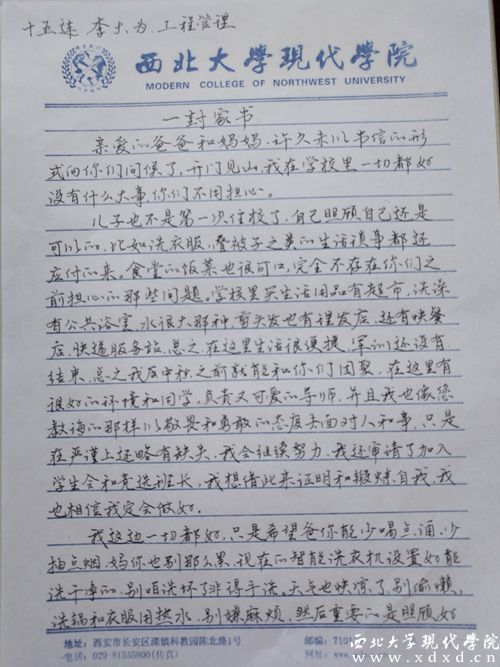 十五连 李大为 工程管理
西北大学现代学院
MODERN COLLEGE OF NORTHWEST UNIVERSITY
一封家书
亲爱的爸爸和妈妈,许久未以书信的形
式向你们问候了,开门见山,我在学校里一切都好
没有什么大事,你们不用担心。
儿子也不是第一次住校了,自己照顾自己还是
可以的,比如洗衣服,叠被子之类的生活琐事都还
应付的来。食堂的饭菜也很可口,完全不存在你们之
前担心的那些问题。学校里买生活用品有超市,洗澡
有公共浴室,水很大那种,剪头发也有理发店,还有快餐
店,快递服务站,总之,在这里生活很便捷,军训还没有
结束,总之我应中秋之前就能和你们团聚,在这里有
很好的环境和同学,负责又可爱的导师,并且我也像您
教诲的那样以敬畏和勇敢的态度去面对人和事,只是
在严谨上还略有缺失,我会继续努力,我还申请了加入
学生会和竞选班长,我想借此来证明和锻炼自我,我
也相信我定会做好。
我这边一切都好,只是希望爸你能少喝点酒,少
抽点烟,妈你也别那么累,现在的智能洗衣机设置好能
洗干净的,别咱洗坏了非得手洗。天气也快凉了,别偷懒,
洗锅和衣服用热水,别嫌麻烦,然后重要的是照顾好
地址:西安市长安区滦镇科教园陈北路1号
电话:029-81555800(传真)
邮编:710
网址:www.
西北大学现代学院
www.xdxd.cn